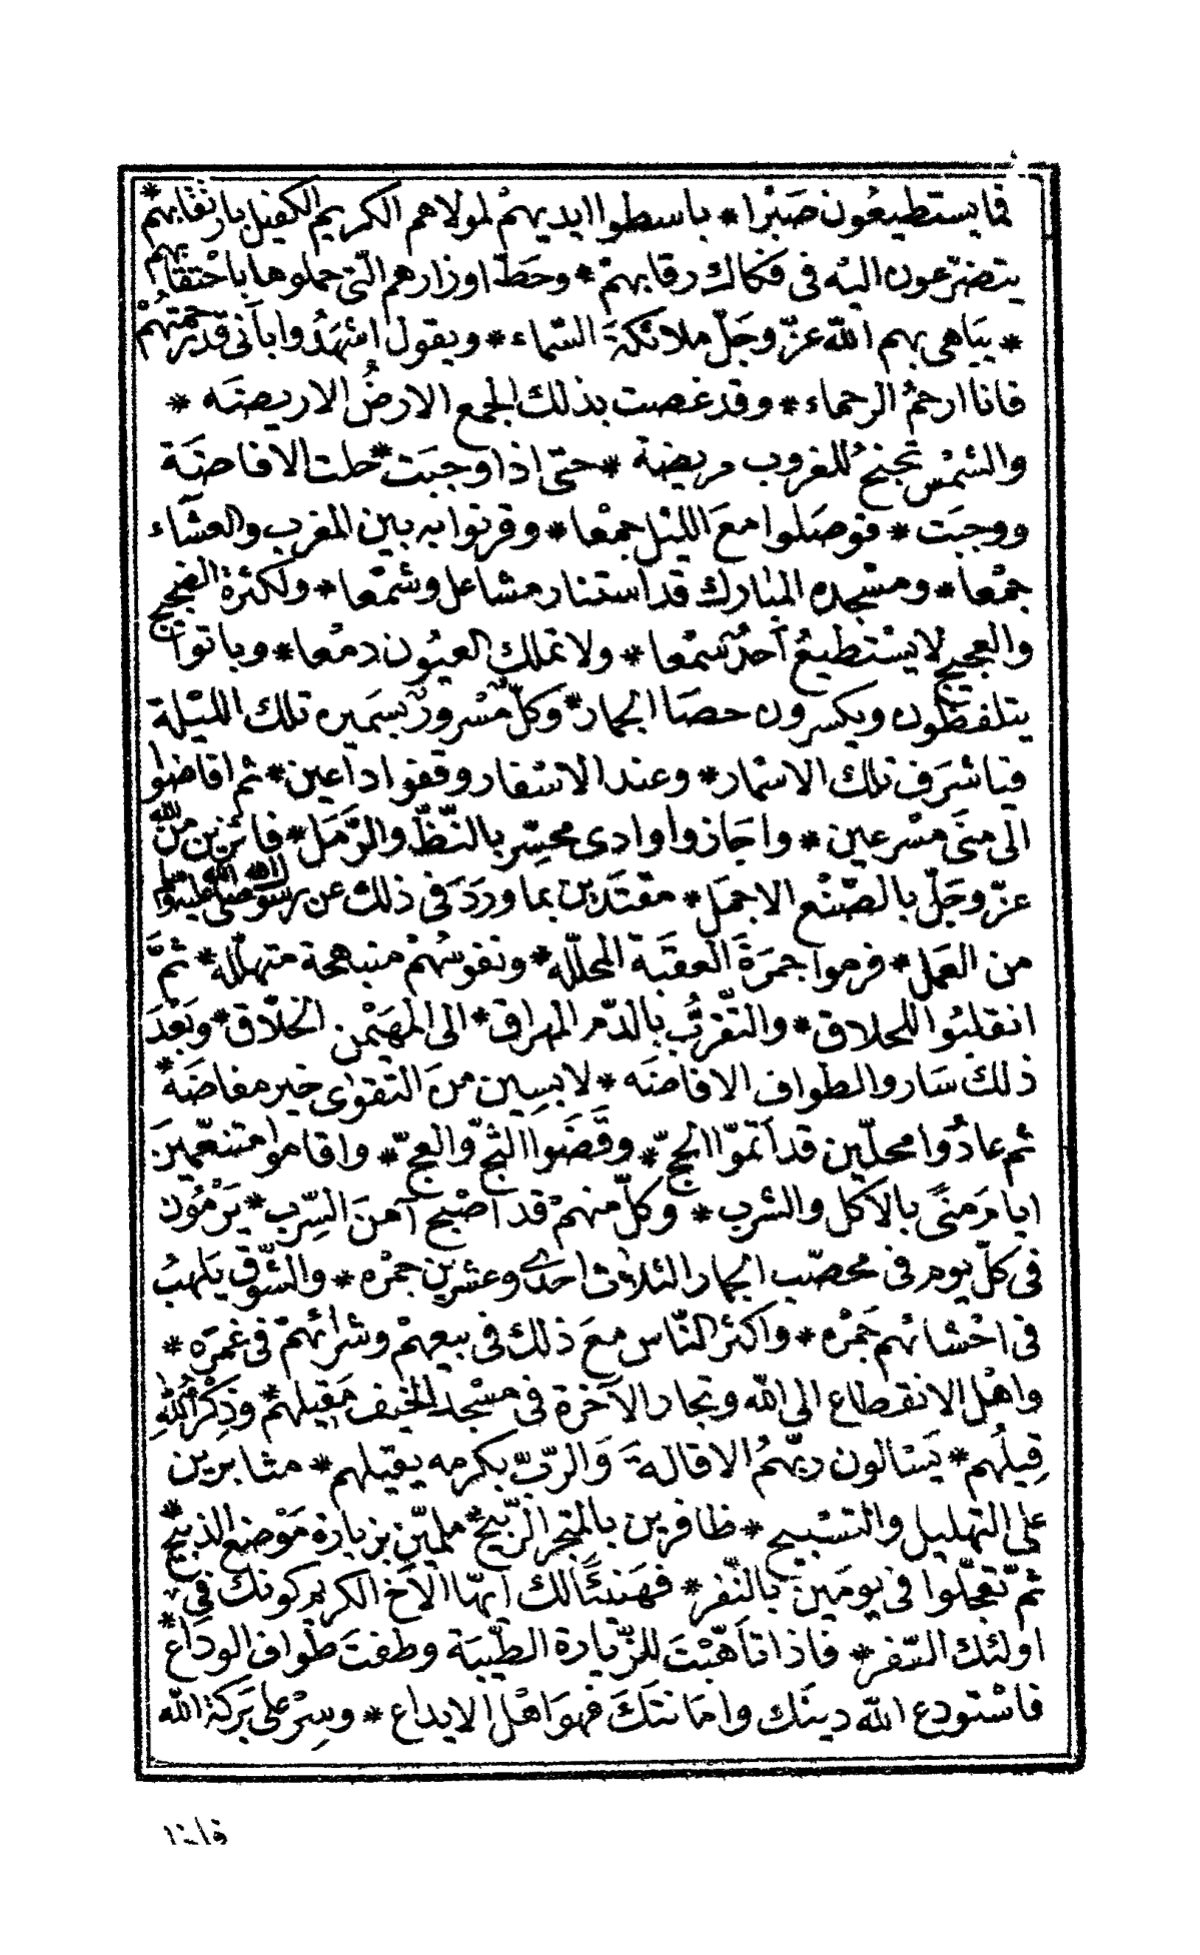 فما يستطيعُون صَبْرا * باسطوا ايديهمْ لمولاهم الكريم الكفيل بارتفابهمْ *
يتضرّعون اليْه فى فكاك رقابهمْ * وحَطّ اوزارهم الّتى حملوها باحْتقابهم
* يبَاهى بهم الله عزّ وجَلّ ملائكة السّماء * ويقول اشهَدُوا بأنى قد رحمتهُمْ
فانا ارحمُ الرحماء * وقد غصت بذلك الجمع الارضُ الاريضَه *
والشمْس تجنحُ للغروب مريضة * حتى اذا وجبَت * حلت الافاضَة
ووجبَت * فوصَلوا معَ الليْل جمْعا * وقرنوا به بين المغرب والعشاء
جمْعا * ومسْجده المبارك قد استنار مشاعل وشمْعا * ولكثرة الضجيج
والعجيج لا يسْتطيعُ أحدٌ سَمْعا * ولا تملك العيُون دمْعا * وباتوا
يتلقطون ويكسرون حصَا الجمار * وكلّ مسْرورٌ بسَمير تلك الليْلة
فيا شرَف تلك الاسْمار * وعند الاسْفار وقفوا داعين * ثم افاضوا
الى منَى مسْرعين * واجَازوا وادى محسِّر بالنّظّ والرَّمَل * فائزين من الله
عزّ وجَلّ بالصّنْع الاجمَل * مقتَدين بما ورَدَ فى ذلك عن رسول الله صلى الله عليه وسلم
من العَمل * فرموا جمرَةَ العقبَة المحلّله * ونفوسُهمْ منبهجة متهلّله * ثمَّ
انقلبُوا للحلاق * والتّقرُّب بالدّم المهراق * الى المهَيْمن الخلّاق * وبَعْدَ
ذلك سَاروا لطواف الافاضَه * لابسِين منَ التقوٰى خير مفاضَة *
ثم عادُوا محلّين قد اتمّوا الحجّ * وقَضَوا الثجّ والعجّ * واقاموا متنعّمينَ
ايام مَنًى بالاكل والشرب * وكلّ منهمْ قد اصْبح آمنَ السِّرب * يَرْمُون
فى كلّ يوم فى محصّب الجمار الثلاث احدى وعشرين جمْره * والشّوْق يَلهبُ
فى احْشائهم جَمْره * واكثر النّاس معَ ذلك فى بيعهمْ وشرائهمْ فى غمَره *
واهْل الانقطاع الى الله وتجار الآخرة فى مسْجد الخيف مَقيلهمْ * وذِكْرُ اللهِ
قِيلُهم * يَسْالون ربّهمُ الاقالة وَالربّ بكرمه يقيلهم * مثابرين
على التهليل والتسْبيح * ظافرين بالمتجر الرّبيح * مملّين بزيارة موْضع الذبيح *
ثمّ تعَجّلوا فى يومَين بالنّفر * فهَنيئًا لك ايّها الاخ الكريم كونك فى
اولئك السّفر * فاذا تأهّبْتَ للزّيارة الطيّبَة وطفتَ طواف الودَاع *
فاسْتودع الله دينَك وامَانتَكَ فهوَ اهْل الايداع * وسِرْ على بَركة الله
فاذا